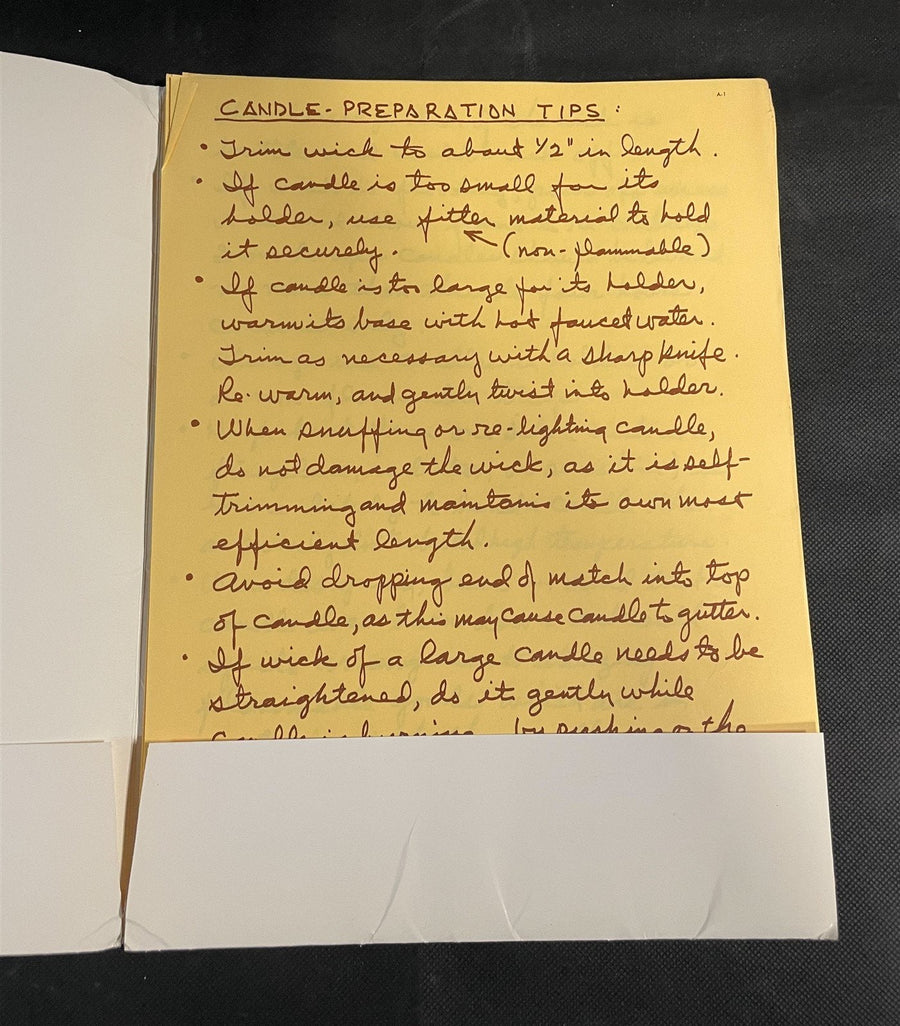 A-1
CANDLE-PREPARATION TIPS:
• Trim wick to about 1/2" in length.
• If candle is too small for its
holder, use fitter material to hold
it securely. (non-flammable)
• If candle is too large for its holder,
warm its base with hot faucet water.
Trim as necessary with a sharp knife.
Re-warm, and gently twist into holder.
• When snuffing or re-lighting candle,
do not damage the wick, as it is self-
trimming and maintains its own most
efficient length.
• Avoid dropping end of match into top
of candle, as this may cause candle to gutter.
• If wick of a large candle needs to be
straightened, do it gently while
candle is burning by pushing